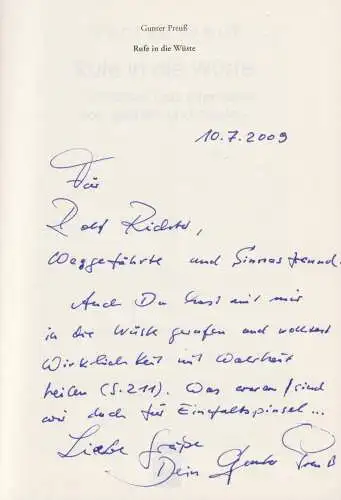 Gunter Preuß
Rufe in die Wüste
10.7.2009
Für
Rolf Richter,
Weggefährte und Sinnesfreund.
Auch Du hast mit mir
in die Wüste gerufen und wolltest
Wirklichkeit mit Wahrheit
heilen (S.211). Was waren/sind
wir doch für Einfaltspinsel...
Liebe Grüße
Dein Gunter Preuß